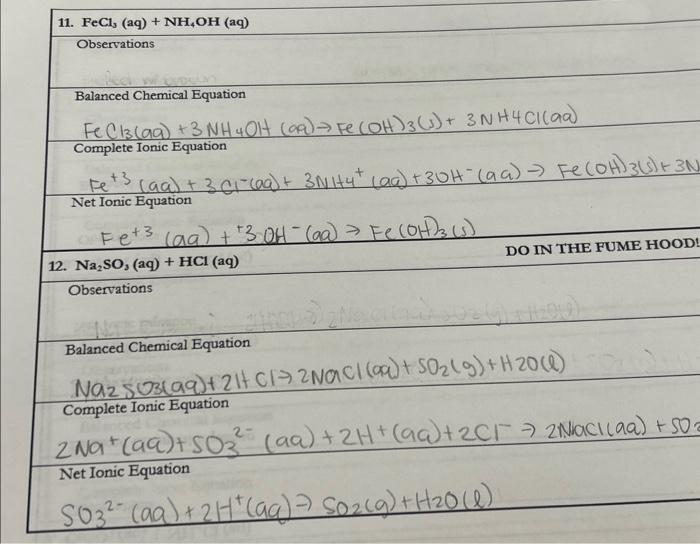 11. FeCl₃ (aq) + NH₄OH (aq)
Observations
Balanced Chemical Equation
FeCl3(aq) + 3NH4OH (aq) → Fe(OH)3(s) + 3NH4Cl(aq)
Complete Ionic Equation
Fe⁺³ (aq) + 3Cl⁻(aq) + 3NH4⁺ (aq) + 3OH⁻(aq) → Fe(OH)3(s) + 3N
Net Ionic Equation
Fe⁺³ (aq) + ⁺3 OH⁻(aq) → Fe(OH)3(s)
12. Na₂SO₃ (aq) + HCl (aq) DO IN THE FUME HOOD!
Observations
Balanced Chemical Equation
Na2SO3(aq) + 2HCl → 2NaCl(aq) + SO2(g) + H2O(l)
Complete Ionic Equation
2Na⁺(aq) + SO3²⁻ (aq) + 2H⁺(aq) + 2Cl⁻ → 2NaCl(aq) + SO2
Net Ionic Equation
SO3²⁻ (aq) + 2H⁺(aq) → SO2(g) + H2O(l)